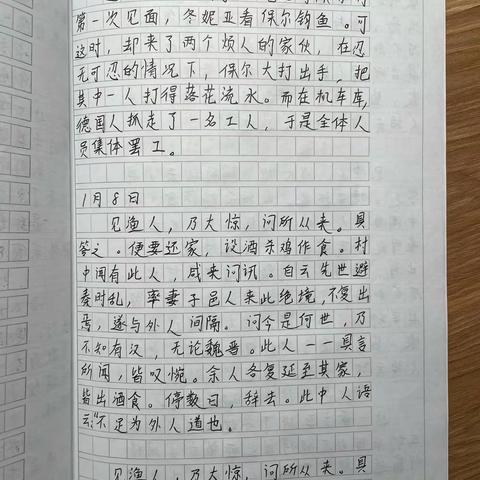 第一次见面，冬妮亚看保尔钓鱼。可
这时，却来了两个烦人的家伙，在忍
无可忍的情况下，保尔大打出手，把
其中一人打得落花流水。而在机车库，
德国人抓走了一名工人，于是全体人
员集体罢工。
1月8日
见渔人，乃大惊，问所从来。具
答之。便要还家，设酒杀鸡作食。村
中闻有此人，咸来问讯。自云先世避
秦时乱，率妻子邑人来此绝境，不复出
焉，遂与外人间隔。问今是何世，乃
不知有汉，无论魏晋。此人一一具言
所闻，皆叹惋。余人各复延至其家，
皆出酒食。停数日，辞去。此中人语
云:“不足为外人道也。
见渔人，乃大惊，问所从来。具